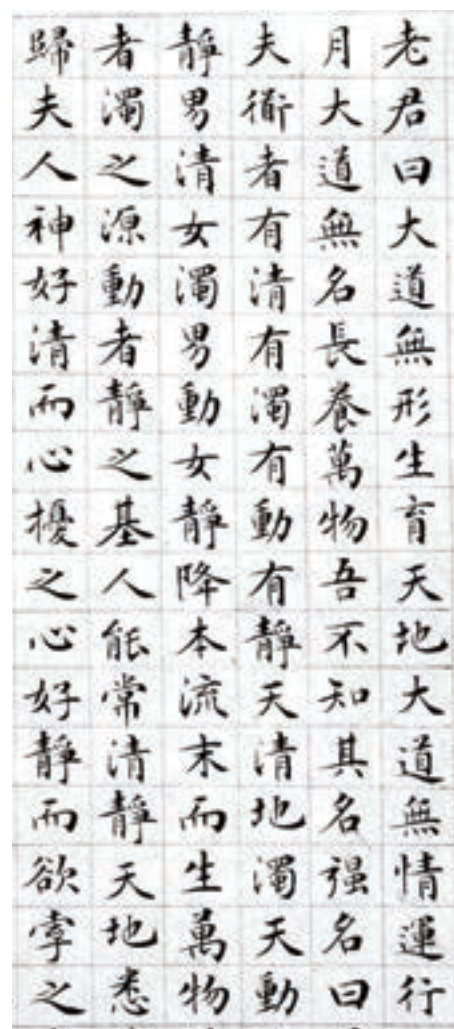 老君曰大道無形生育天地大道無情運行
月大道無名長養萬物吾不知其名强名曰
夫衜者有清有濁有動有靜天清地濁天動
靜男清女濁男動女靜降本流末而生萬物
者濁之源動者靜之基人能常清靜天地悉
歸夫人神好清而心擾之心好靜而欲牽之